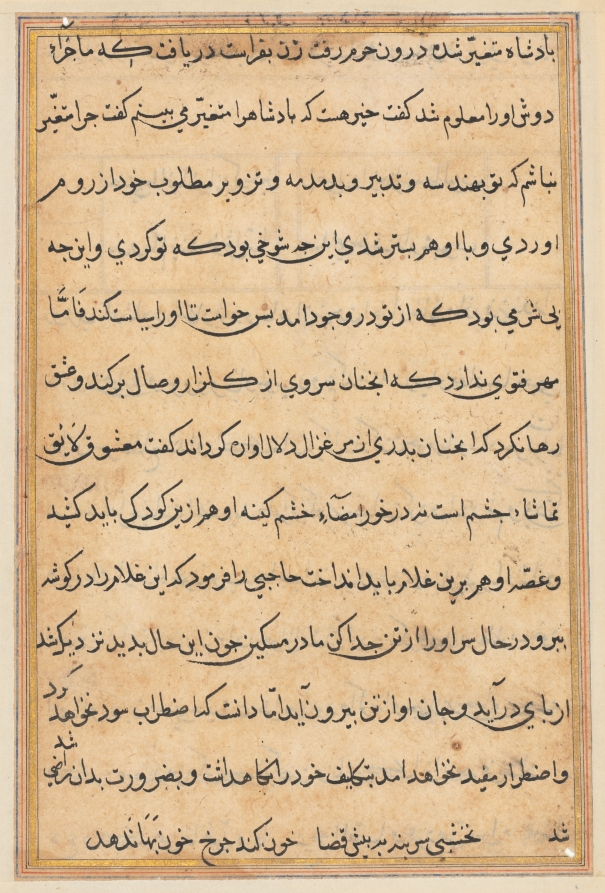 بادشاه متغیّر شده درون حرم رفت زن بفراست دریافت که ماجراء
دوش او را معلوم شد گفت خیر هست که بادشاه را متغیّر می بینم گفت جرا متغیّر
نباشم که تو بهندسه و تدبیر و بدمدمه و تزویر مطلوب خود از روم
اوردی و با او هم بستر شدی این جه شوخی بود که تو کردی و این جه
بی شرمی بود که از تو در وجود امد بس خواست تا او را سیاست کند فَامَّا
مهر فتوی نداد که انجنان سروی از کلزار وصال برکند و عشق
رها نکرد که انجنان بدری از غزال دلال اواره کرداند کفت معشوق لایق
تماشاء جشم است نه در خور امضآءِ خشم کینه او هم ازین کودک باید کشید
و غصّه او هم برین غلام باید انداخت حاجبی را فرمود که این غلام را در کوشه
ببر و در حال سر او را از تن جدا کن مادر مسکین جون این حال بدید نزدیک شد
از بای در آید و جان او از تن بیرون آید امّا دانست که اضطراب سود نخواهد کرد
و اضطرار مفید نخواهد امد بتکلیف خود را نکاهداشت و بضرورت بدان راضی شد
شد نخشبی سر بنه به بیش قضا خون کند جرخ خون بهَا ندهد